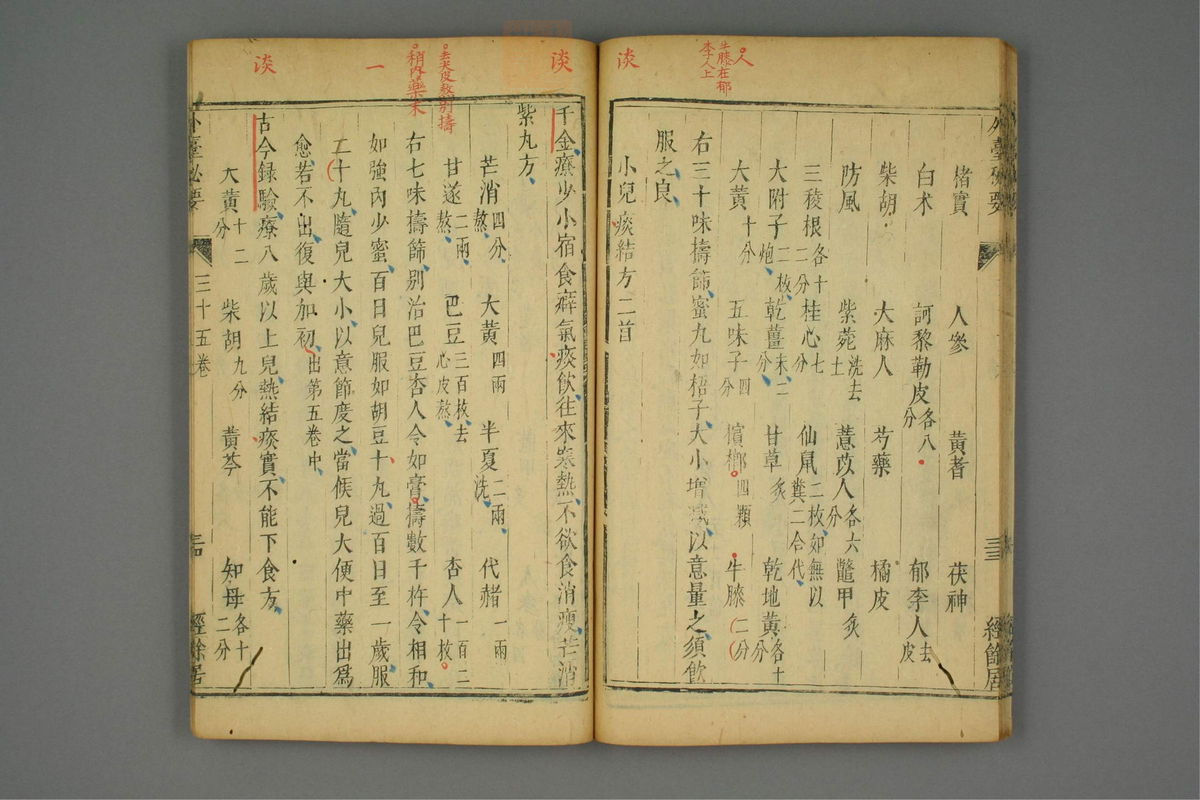 人
牛膝在郁
李人上
淡
外臺秘要
三三
經餘居
楮實 人參 黃耆 茯神
白术 訶黎勒皮各八分 郁李人去皮
柴胡 大麻人 芍藥 橘皮
防風 紫菀洗去土 薏苡人各六分 鼈甲炙
三稜根各十二分 桂心七分 仙鼠糞二合
二枚如無以
代
大附子二枚炮 乾薑末二分 甘草炙 乾地黃各十分
大黃十分 五味子四分 檳榔四顆 牛膝二分
右三十味擣篩蜜丸如梧子大小增減以意量之須飲
服之良
小兒痰結方二首
淡
去大皮熬別擣
稍內藥末
一
淡
千金療少小宿食癖氣痰飲往來寒熱不欲食消瘦芒消
紫丸方
芒消四分熬 大黃四兩 半夏二兩洗 代赭一兩
甘遂二兩熬 巴豆三百枚去心皮熬 杏人一百二十枚
右七味擣篩別治巴豆杏人令如膏擣數千杵令相和
如強內少蜜百日兒服如胡豆十丸過百日至一歲服
二十丸隨兒大小以意節度之當候兒大便中藥出爲
愈若不出復與如初出第五卷中
古今錄驗療八歲以上兒熱結痰實不能下食方
大黃十二分 柴胡九分 黃芩 知母各十二分
外臺秘要
三十五卷
三四
經餘居